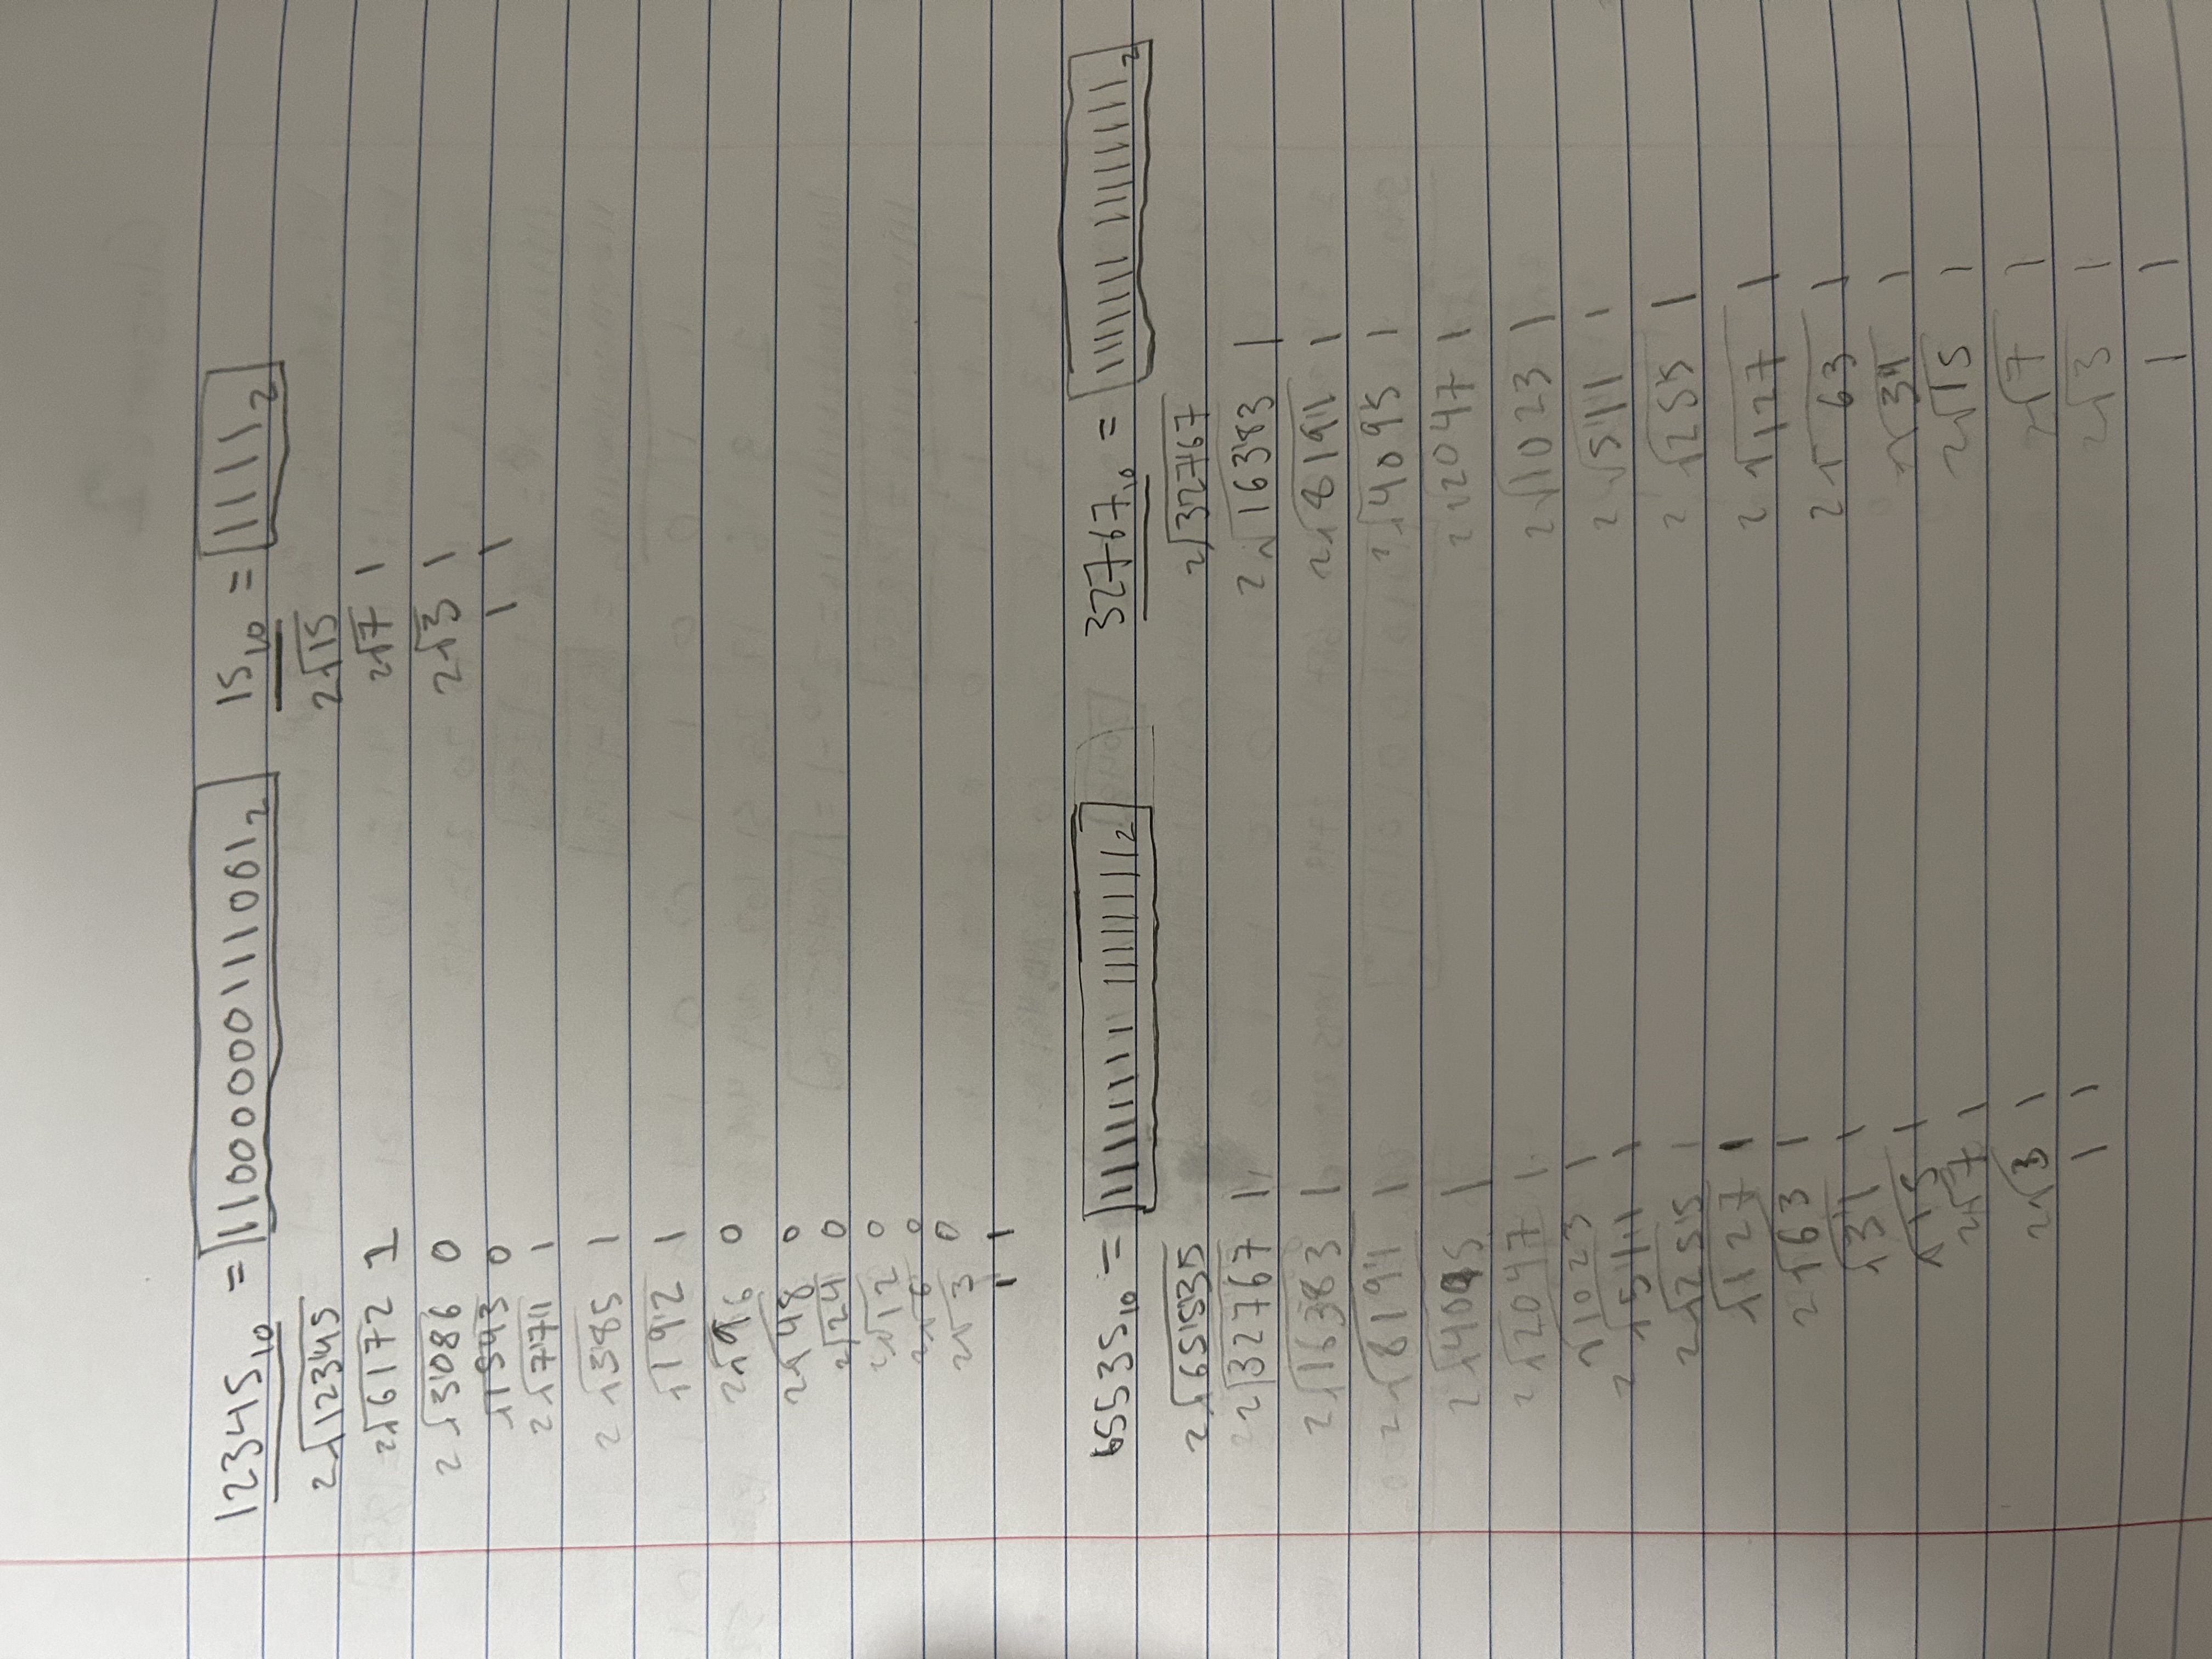 12345₁₀ = 11000000111001₂
2√12345
2√6172 1
2√3086 0
√1543 0
2√771 1
2√385 1
√192 1
2√96 0
2√48 0
2√24 0
2√12 0
2√6 0
2√3 0
1 1
15₁₀ = 1111₂
2√15
2√7 1
2√3 1
1 1
65535₁₀ = 11111111 11111111₂
2√65535
2√32767 1
2√16383 1
2√8191 1
2√4095 1
2√2047 1
√1023 1
2√511 1
2√255 1
√127 1
2√63 1
√31 1
√15 1
2√7 1
2√3 1
1 1
32767₁₀ = 1111111 11111111₂
2√32767
2√16383 1
2√8191 1
2√4095 1
2√2047 1
2√1023 1
2√511 1
2√255 1
2√127 1
2√63 1
√31 1
2√15 1
2√7 1
2√3 1
1 1